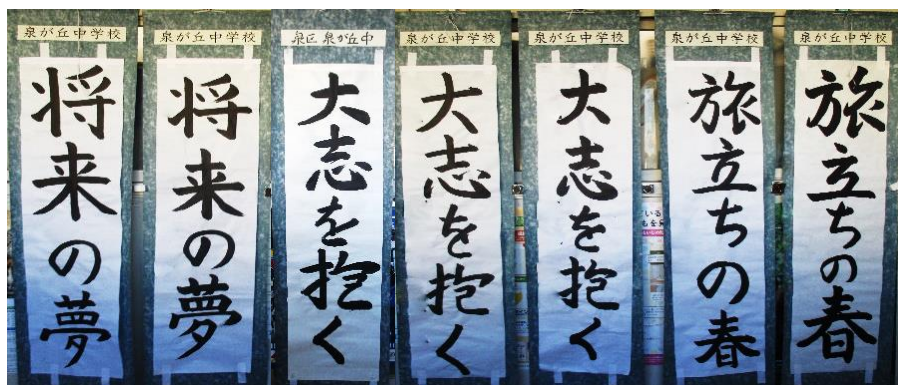 泉が丘中学校
将来の夢
泉が丘中学校
将来の夢
泉区 泉が丘中
大志を抱く
泉が丘中学校
大志を抱く
泉が丘中学校
大志を抱く
泉が丘中学校
旅立ちの春
泉が丘中学校
旅立ちの春